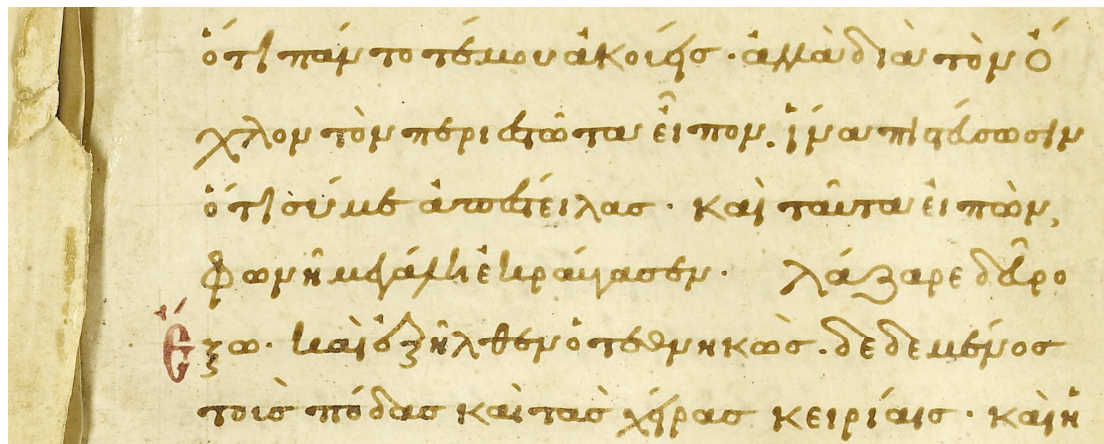 ὅτι πάντοτέ μου ἀκούεις· ἀλλὰ διὰ τὸν ὄ
χλον τὸν περιεστῶτα εἶπον. ἵνα πιστεύσωσιν
ὅτι σύ με ἀπέστειλας· καὶ ταῦτα εἰπὼν,
φωνῆ μεγάλη ἐκραύγασεν· λάζαρε δεῦρο
ἔξω· καὶ ἐξῆλθεν ὁ τεθνηκὼς. δεδεμένος
τοὺς πόδας καὶ τὰς χεῖρας κειρίαις· καὶ ἡ